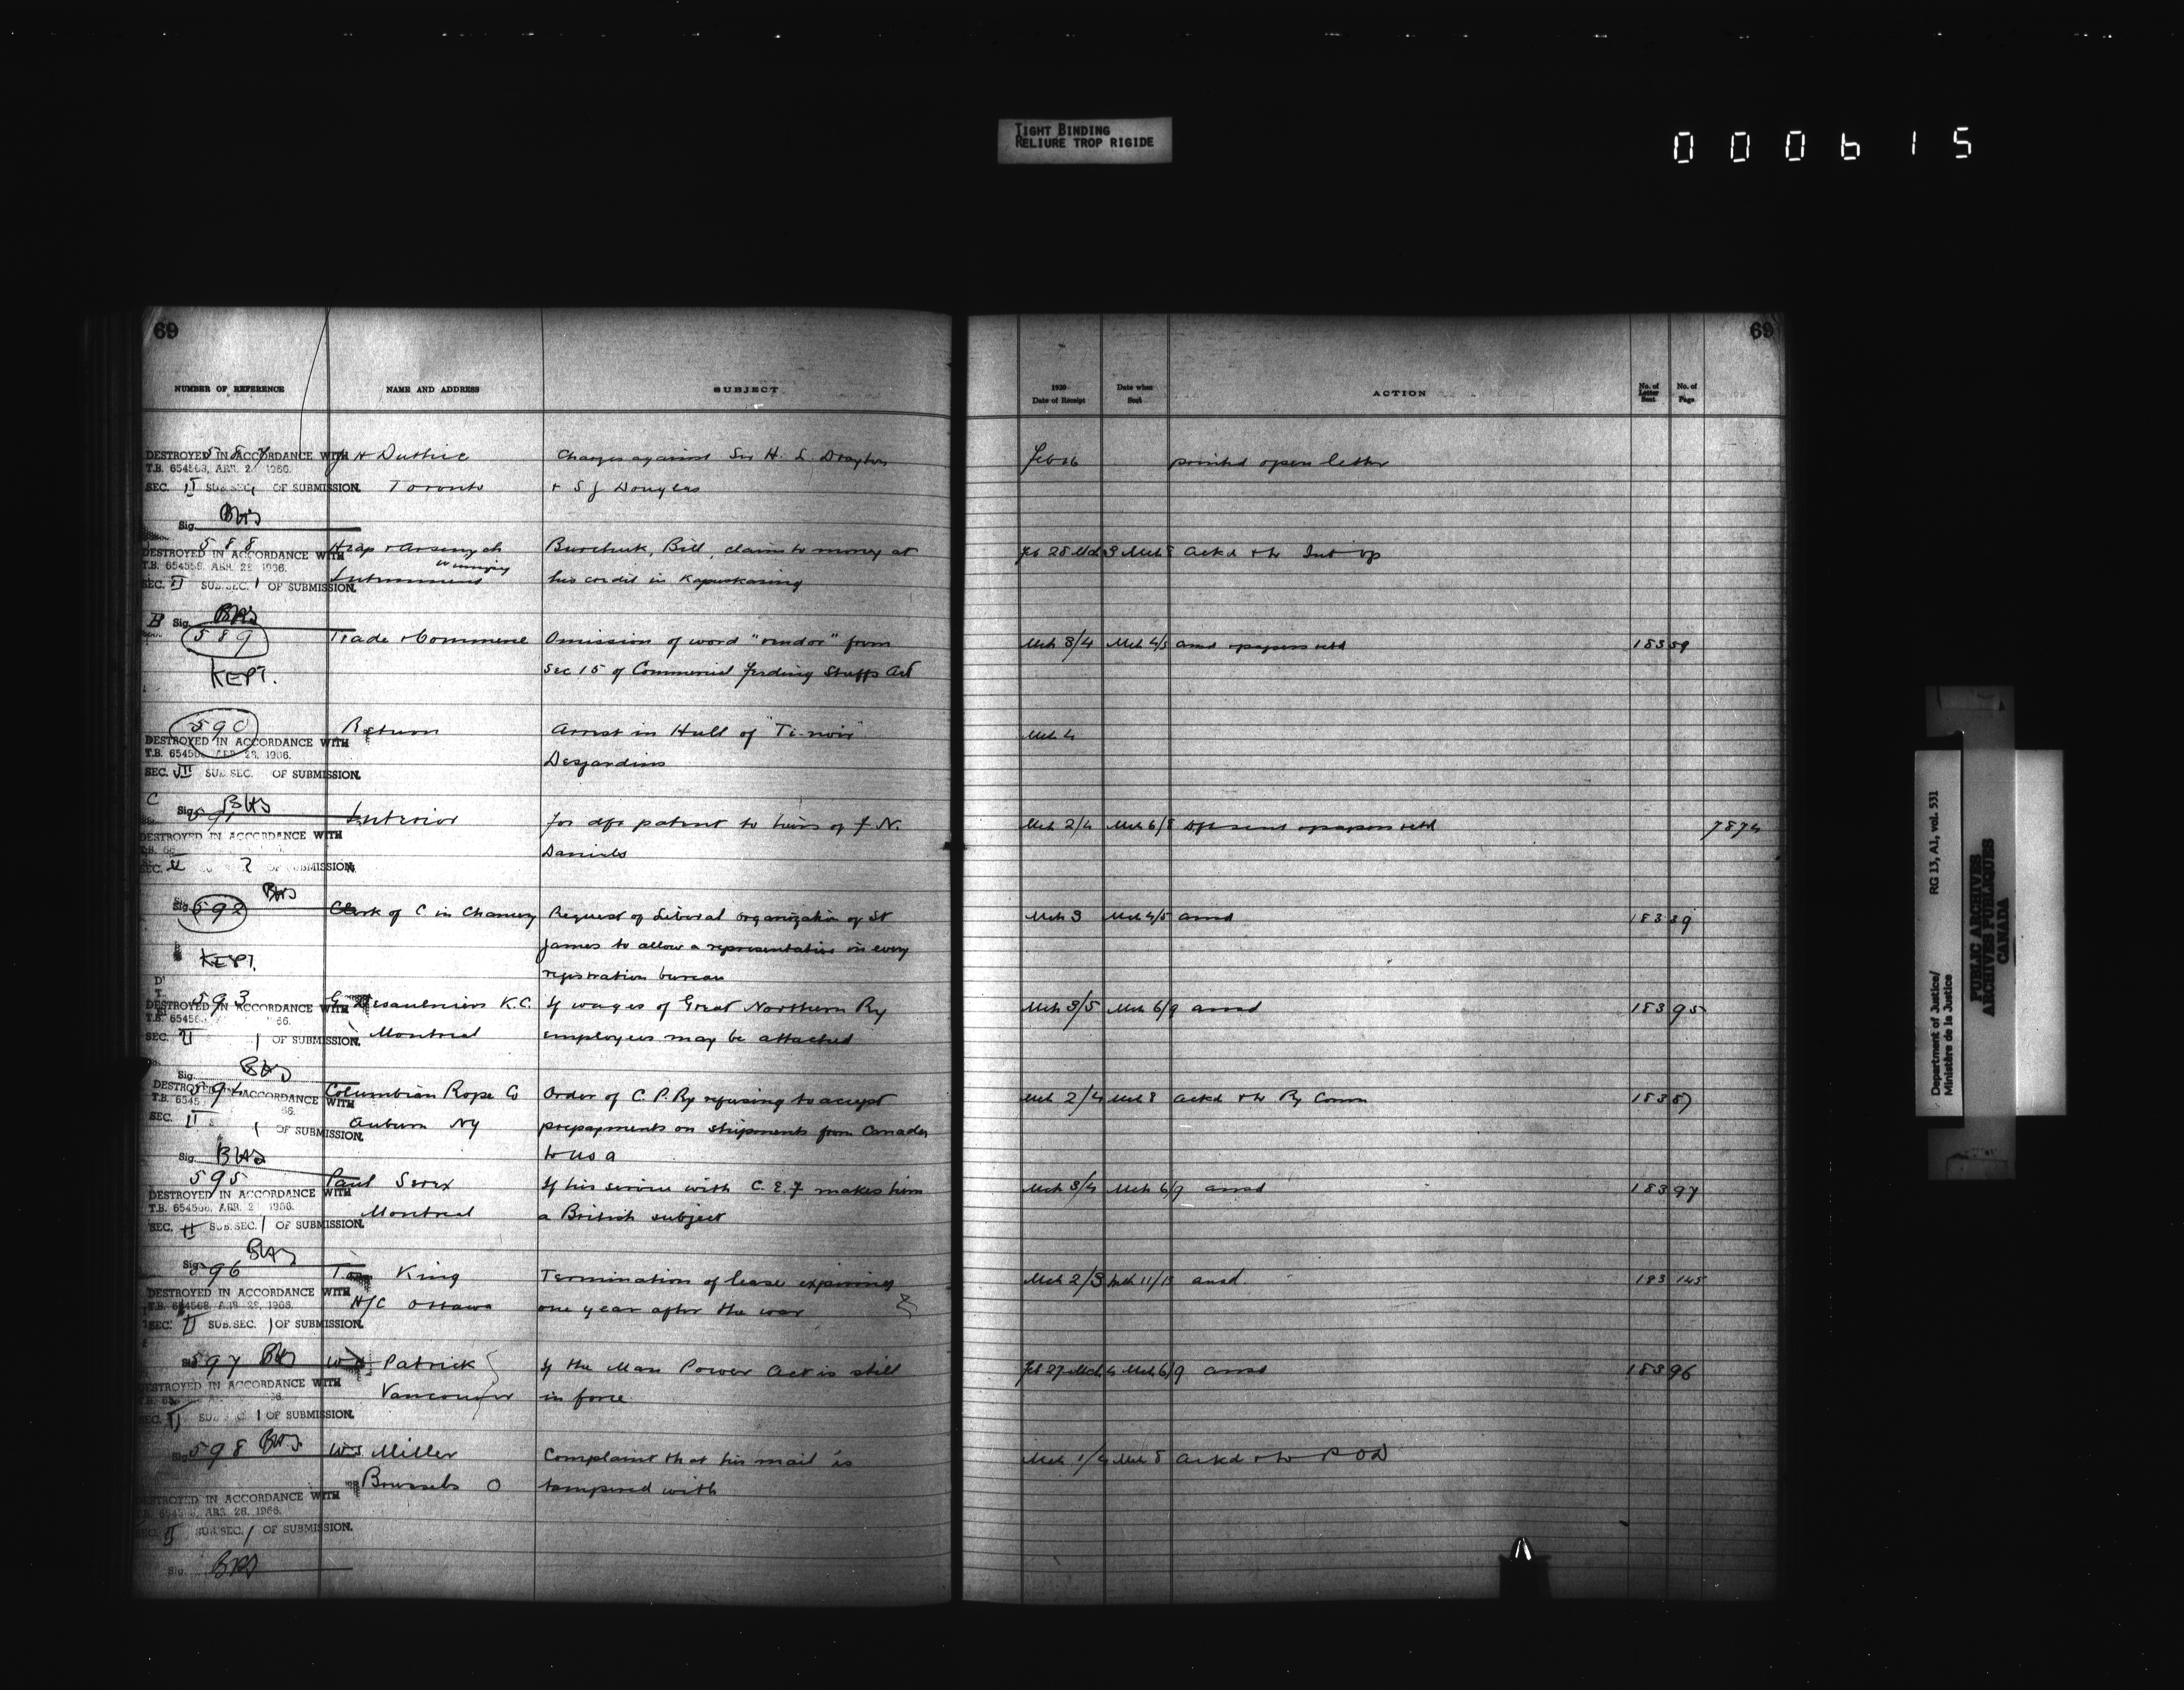 TIGHT BINDING
RELIURE TROP RIGIDE
000615
69
69
NUMBER OF REFERENCE NAME AND ADDRESS SUBJECT
1920 Date of Receipt Date when Sent ACTION No. of Letter Sent No. of Page
587 J H Duthie Charges against Sir H. L. Drayton Feb 26 printed open letter
DESTROYED IN ACCORDANCE WITH
T.B. 654568, APR. 2 1966.
SEC. II SUB.SEC. 1 OF SUBMISSION. Toronto + S J Douglas
Sig. BHS
588 Heap & Arsenych Burchuk, Bill, claim to money at Feb 28 Mch 3 Mch 8 ackd + to Int op
DESTROYED IN ACCORDANCE WITH
Winnipeg
T.B. 654568, APR. 28, 1966.
SEC. II SUB.SEC. 1 OF SUBMISSION. his credit in Kapuskasing
B Sig. BHS
589 Trade & Commerce Omission of word "vendor" from Mch 3/4 Mch 4/5 ansd & papers retd 183 59
KEPT. Sec 15 of Commercial Feeding Stuffs Act
590 Return Arrest in Hull of "Ti-noir" Mch 4
DESTROYED IN ACCORDANCE WITH
T.B. 65456 APR 28, 1966.
SEC. III SUB.SEC. OF SUBMISSION. Desjardins
C Sig. BHS
591 Interior for dft patent to heirs of J. N. Mch 2/4 Mch 6/8 dft sent & papers retd 7874
DESTROYED IN ACCORDANCE WITH
Daniels
SEC. II 2 OF SUBMISSION.
Sig. BHS
592 Clerk of C in Chancery Request of Liberal organization of St Mch 3 Mch 4/5 ansd 183 39
James to allow a representative in every
KEPT. registration bureau
593 G Desaulniers K.C. If wages of Great Northern Ry Mch 3/5 Mch 6/9 ansd 183 95
DESTROYED IN ACCORDANCE WITH
T.B. 65456 66.
SEC. II 1 OF SUBMISSION. Montreal employees may be attached
Sig. BHS
594 Columbian Rope Co Order of C. P. Ry refusing to accept Mch 2/4 Mch 8 ackd + to Ry Comm 183 87
DESTROYED IN ACCORDANCE WITH
T.B. 6545 66.
SEC. II 1 OF SUBMISSION. Auburn NY prepayments on shipments from Canada
to USA
Sig. BHS
595 Paul If his service with C. E. F makes him Mch 3/4 Mch 6/9 ansd 183 97
DESTROYED IN ACCORDANCE WITH
T.B. 654568, APR. 2 1966.
SEC. II SUB.SEC. 1 OF SUBMISSION. Montreal a British subject
Sig. BHS
596 King Termination of lease expiring Mch 2/3 Mch 11/13 ansd 183 145
DESTROYED IN ACCORDANCE WITH
T.B. 654568, APR 28, 1966. H/C Ottawa one year after the war
SEC. II SUB.SEC. 1 OF SUBMISSION.
Sig. BHS
597 Patrick If the Man Power Act is still Feb 27 Mch 4 Mch 6/9 ansd 183 96
DESTROYED IN ACCORDANCE WITH
Vancouver in force
SEC. II 1 OF SUBMISSION.
Sig. BHS
598 W S Miller Complaint that his mail is Mch 1/4 Mch 8 ackd + to P O D
Brussels O tampered with
DESTROYED IN ACCORDANCE WITH
T.B. 654568, APR. 28, 1966.
SEC. II SUB.SEC. 1 OF SUBMISSION.
Sig. BHS
Department of Justice/ RG 13, A1, vol. 531
Ministère de la Justice
PUBLIC ARCHIVES
ARCHIVES PUBLIQUES
CANADA